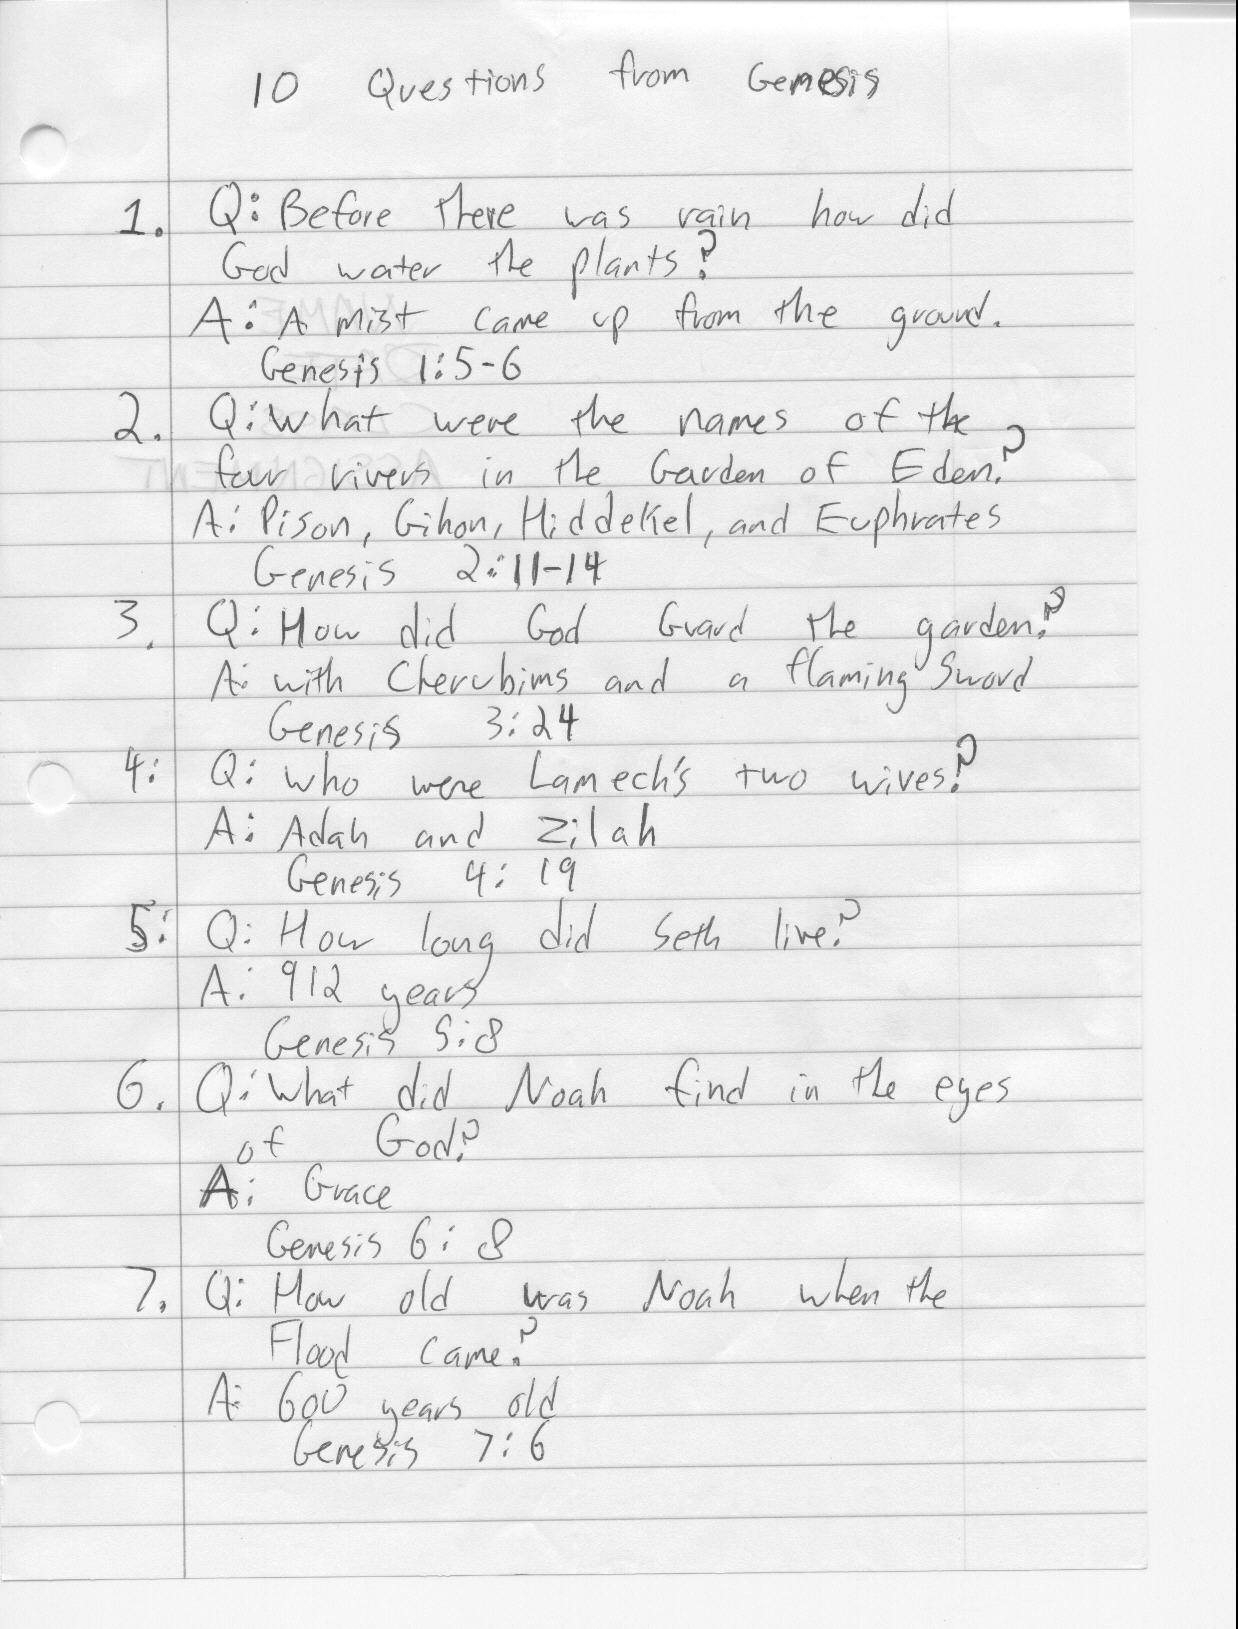 10 Questions from Genesis
1. Q: Before there was rain how did
God water the plants?
A: A mist came up from the ground.
Genesis 1:5-6
2. Q: What were the names of the
four rivers in the Garden of Eden?
A: Pison, Gihon, Hiddekel, and Euphrates
Genesis 2:11-14
3. Q: How did God Guard the garden?
A: with Cherubims and a flaming Sword
Genesis 3:24
4: Q: Who were Lamech's two wives?
A: Adah and Zilah
Genesis 4:19
5: Q: How long did Seth live?
A: 912 years
Genesis 5:8
6. Q: What did Noah find in the eyes
of God?
A: Grace
Genesis 6:8
7. Q: How old was Noah when the
Flood came?
A: 600 years old
Genesis 7:6